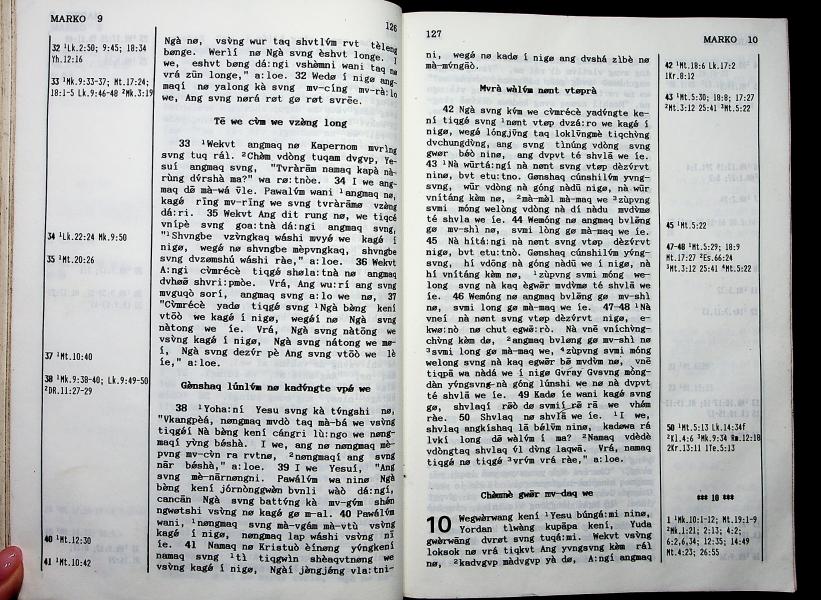 MARKO 9
126
32 ¹Lk.2:50; 9:45; 18:34
Yh.12:16
33 ¹Mk.9:33-37; Mt.17:24;
18:1-5 Lk.9:46-48 ²Mk.3:19
34 ¹Lk.22:24 Mk.9:50
35 ¹Mt.20:26
37 ¹Mt.10:40
38 ¹Mk.9:38-40; Lk.9:49-50
²DR.11:27-29
40 ¹Mt.12:30
41 ¹Mt.10:42
Ngà nø, vsv̀ng wur taq shvtlv́m rvt tèleng
bønge. Werlí nø Ngà svng èshvt longe. I
we, eshvt bøng dá:ngi vshèmni wani taq nø
vrá zūn longe," a:loe. 32 Wedø í nigø ang-
maqí nø yalong kà svng mv-cíng mv-rà:lo
we, Ang svng nørá røt gø røt svrēe.
Tē we cv̀m we vzèng long
33 ¹Wekvt angmaq nø Kapernom mvrìng
svng tuq rál. ²Chèm vdòng tuqam dvgvp, Ye-
suí angmaq svng, "Tvràràm namaq kapà nà-
rùng dv́rshà ma?" wa rø:tnòe. 34 I we ang-
maq dē mà-wá v̄le. Pawalv́m wani ¹angmaq nø,
kagé rīng mv-rīng we svng tvràràmø vzèng
dá:ri. 35 Wekvt Ang dit rung nø, we tiqcé
vnípè svng goa:tnà dá:ngi angmaq svng,
"¹Shvngbe vzv̀ngkaq wáshi mvyé we kagé í
nigø, wegé nø shvngbe mèpvngkaq, shvngbe
svng dvzømshú wáshi ràe," a:loe. 36 Wekvt
A:ngi cv̀mrécè tiqgé shøla:tnà nø angmaq
dvhøø̄ shvri:pmòe. Vrá, Ang wu:rí ang svng
mvguqò sorí, angmaq svng a:lo we nø, 37
"Cv̀mrécè yadø tiqgé svng ¹Ngà bèng kení
vtōò we kagé í nigø, wegéí nø Ngà svng
nàtong we íe. Vrá, Ngà svng nàtōng we
vsv̀ng kagé í nigø, Ngà svng nátong we mø-
í, Ngà svng dezv́r pè Ang svng vtōò we lè
íe," a:loe.
Gènshaq lúnlv́m nø kadv́ngte vpé we
38 ¹Yoha:ní Yesu svng kà tv́ngshi nø,
"Vkangpèá, nøngmaq mvdò taq mà-bá we vsv̀ng
tiqgéí Nà bèng kení cángri lù:ngo we nøng-
maqí yv̀ng béshà. I we, ang nø nøngmaq mè-
pvng mv-cv̀n ra rvtnø, ²nøngmaqí ang svng
nàr béshà," a:loe. 39 I we Yesuí, "Ang
svng mè-nàrnøngni. Pawálv́m wa ninø Ngà
bèng kení jórnònggwèn bvnli wàò dá:ngí,
cancān Ngà svng battv́ng kà mv-gv́m shén
ngwøtshi vsv̀ng nø kagé gø m-al. 40 Pawélv́m
wani, ¹nøngmaq svng mà-vgám mà-vtù vsv̀ng
kagé í nigø, nøngmaq lap wáshi vsv̀ng nī
íe. 41 Namaq nø Kristuò èínøng yv́ngkení
namaq svng ¹tì tiqgwìn shèaqvtnøng we
vsv̀ng kagé í nigø, Ngàí jèngjéng vla:tni-
127
MARKO 10
ni, wegé nø kadø í nigø ang dvshá zìbè nø
mà-mv́ngāò.
Mvrà wàlv́m nønt vtøprà
42 Ngà svng kv́m we cv̀mrécè yadv́ngte ke-
ní tiqgé svng ¹nønt vtøp dvzá:ro we kagé í
nigø, wegé lóngjv̄ng taq loklv̄ngmè tiqchv̀ng
dvchungdv́ng, ang svng tìnúng vdòng svng
gwør béò ninø, ang dvpvt té shvlā we íe.
43 ¹Nà wūrtá:ngí nà nønt svng vtøp dèzv́rt
ninø, bvt etu:tno. Gønshaq cúnshilv́m yvng-
svng, wūr vdòng nà góng nàdū nigø, nà wūr
vnítáng kèm nø, ²mà-mèl mà-maq we ³zùpvng
svmi móng welòng vdòng nà dí nàdu mvdv̀mø
té shvla we íe. 44 Wemóng nø angmaq bvlēng
gø mv-shl nø, svmi lòng gø mà-maq we íe.
45 Nà hítá:ngi nà nønt svng vtøp dèzv́rvt
nigø, bvt etu:tnò. Gønshaq cúnshilv́m yv́ng-
svng, hí vdōng nà góng nàdū we í nigø, nà
hí vnítáng kèm nø, ¹zùpvng svmi móng we-
long svng nà kaq ègwēr mvdv̀mø té shvlā we
íe. 46 Wemóng nø angmaq bvlēng gø mv-shl
nø, svmi long gø mà-maq we íe. 47-48 ¹Nà
vneí nà nønt svng vtøp dèzv́rvt nigø, e-
kwø:nò nø chut egwē:rò. Nà vnē vníchv̀ng-
chv̀ng kèm dø, ²angmaq bvløng gø mv-shl nø
³svmi long gø mà-maq we, ⁴zùpvng svmi móng
welong svng nà kaq ègwēr bē mvdv̀m nø, vnē
tiqpā wa nàdá we í nigø Gvray Gvsvng mòng-
dàn yv́ngsvng-nà góng lúnshi we nø nà dvpvt
té shvlā we íe. 49 Kadø íe wani kagé svng
gø, shvlaqí rēò dø svmií rē rā we vhém
ràe. 50 Shvlaq nø shvlā we íe. ¹I we,
shvlaq angkíshaq lā bélv́m ninø, kadøwa rá
lvkí long dē wàlv́m í ma? ²Namaq vdèdè
vdòngtaq shvlaq v́l dv́ng laqwā. Vrá, namaq
tiqgé nø tiqgé ³vrv́m vrá ràe," a:loe.
Chèmmè gwēr mv-daq we
10 Wegwèrwang kení ¹Yesu búngá:mí ninø,
Yordan tlwàng kupāpa kení, Yuda
gwèrwāng dvrøt svng tuqá:mì. Wekvt vsv̀ng
loksok nø vrá tiqkvt Ang yvngsvng kèm rál
nø, ²kadvgvp màdvgvp yà dø, A:ngí angmaq
42 ¹Mt.18:6 Lk.17:2
1Kr.8:12
43 ¹Mt.5:30; 18:8; 17:27
²Mt.3:12 25:41 ³Mt.5:22
45 ¹Mt.5:22
47-48 ¹Mt.5:29; 18:9
Mt.17:27 ²Es.66:24
³Mt.3:12 25:41 ⁴Mt.5:22
50 ¹Mt.5:13 Lk.14:34f
²Kl.4:6 ³Mk.9:34 Rm.12:18
2Kr.13:11 1Te.5:13
*** 10 ***
1 ¹Mk.10:1-12; Mt.19:1-9
²Mk.1:21; 2:13; 4:2;
6:2,6,34; 12:35; 14:49
Mt.4:23; 26:55